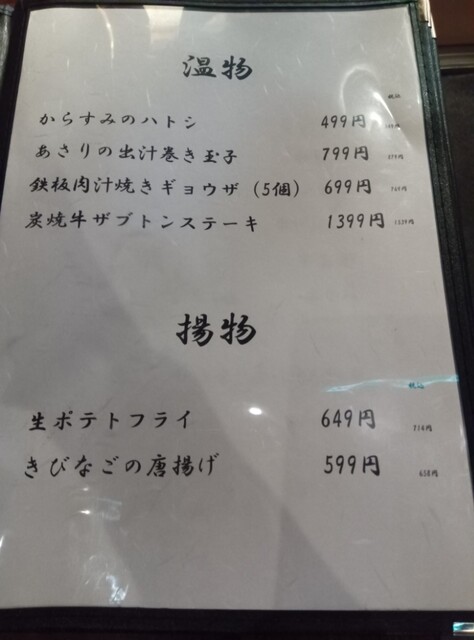 温物
税込
からすみのハトシ 499円
あさりの出汁巻き玉子 799円
鉄板肉汁焼きギョウザ (5個) 699円
炭焼牛ザブトンステーキ 1399円
揚物
税込
生ポテトフライ 649円
きびなごの唐揚げ 599円 658円